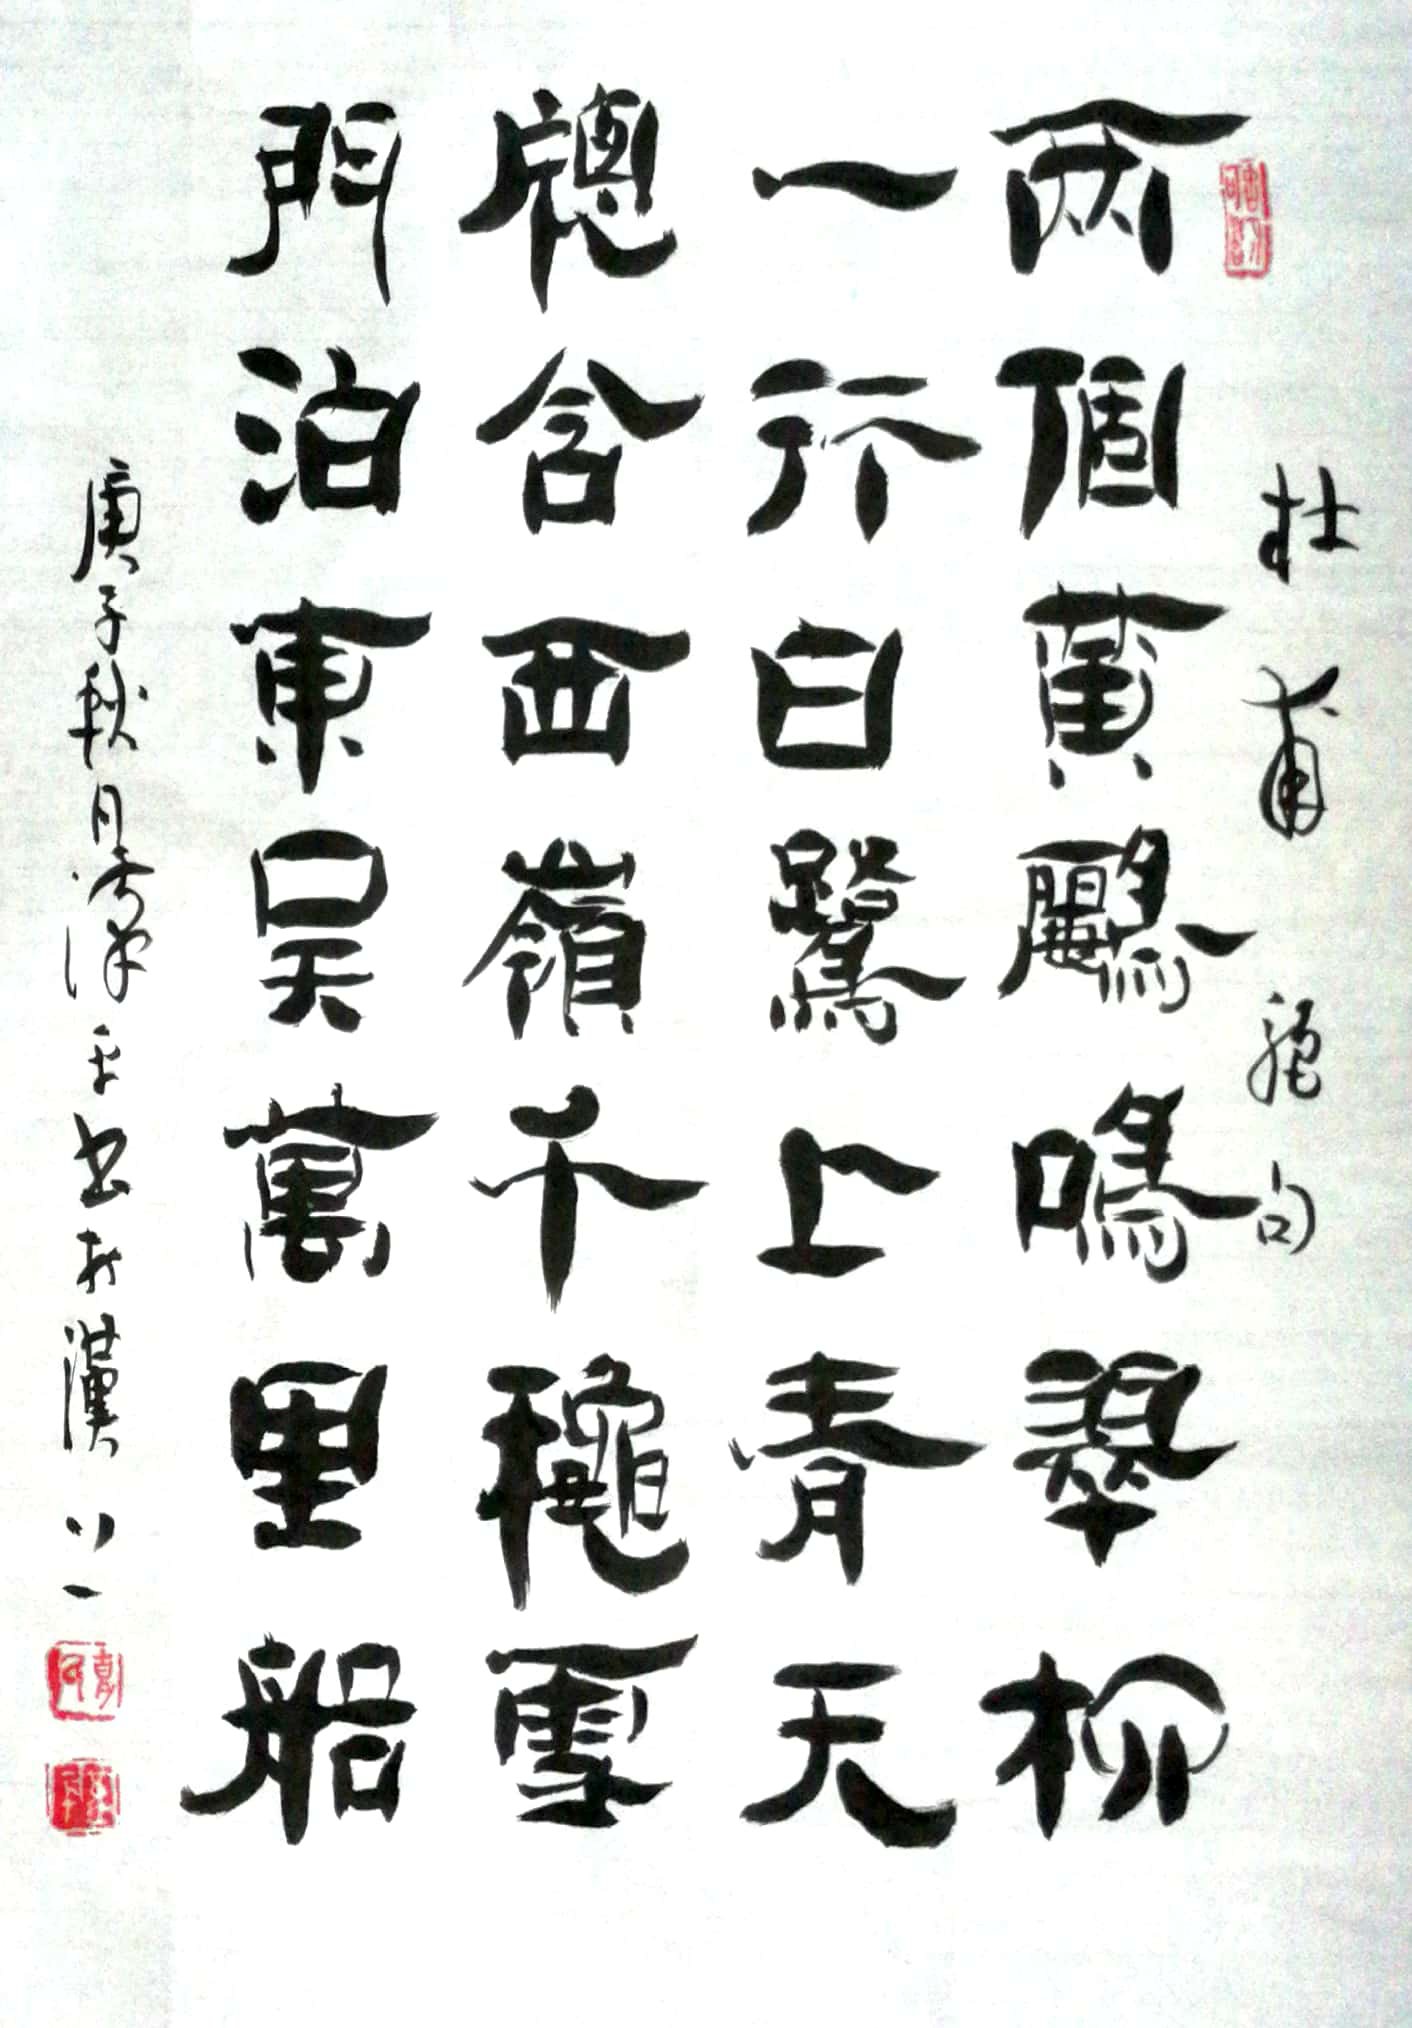 杜甫絕句
兩個黃鸝鳴翠柳
一行白鷺上青天
牕含西嶺千龝雪
門泊東吳萬里船
庚子秋月平書於漢